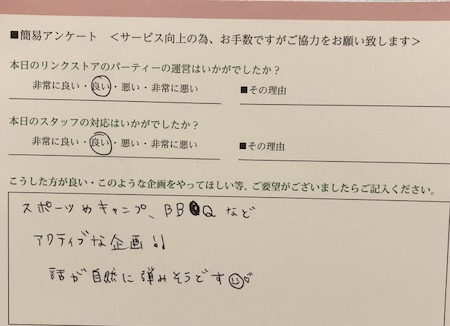 ■簡易アンケート ＜サービス向上の為、お手数ですがご協力をお願い致します＞
本日のリンクストアのパーティーの運営はいかがでしたか？
非常に良い・良い・悪い・非常に悪い ■その理由
本日のスタッフの対応はいかがでしたか？
非常に良い・良い・悪い・非常に悪い ■その理由
こうした方が良い・このような企画をやってほしい等、ご要望がございましたらご記入ください。
スポーツやキャンプ、BBQなど
アクティブな企画!!
話が自然に弾みそうです